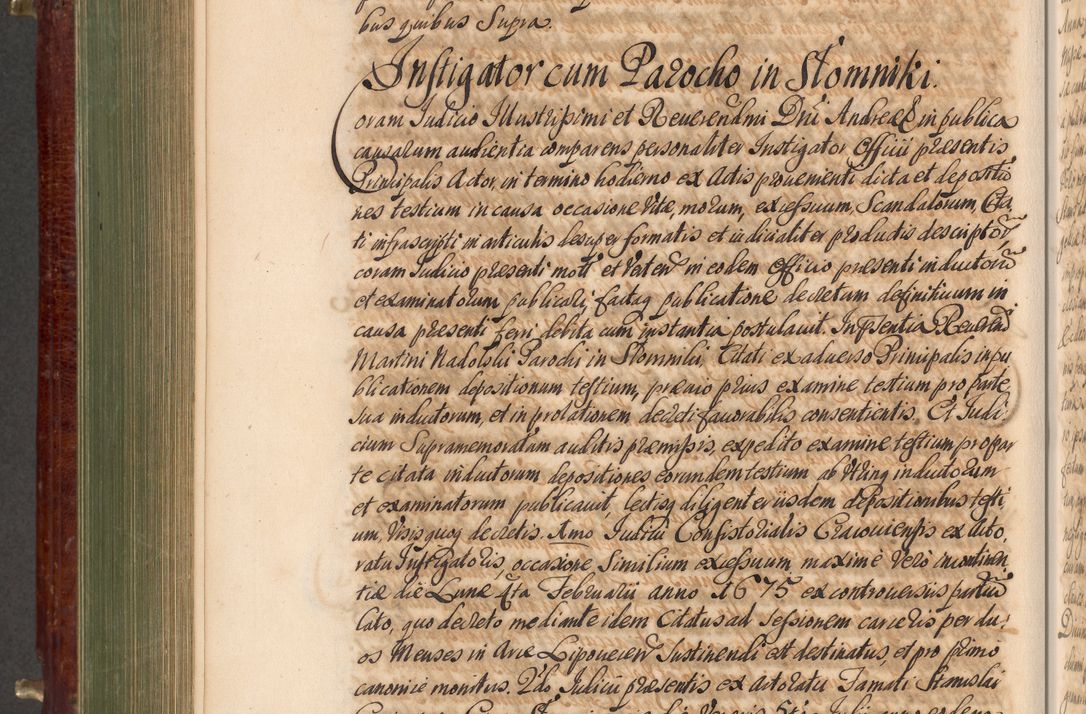 bus quibus Supra.
Instigator cum Parocho in Słomniki.
Coram Iudicio Illustrissimi et Reuerendmi Dni Andreæ in publica
causarum audientia comparens personaliter Instigator Officii præsentis
Principalis Actor, in termino hodierno ex Actis prouenienti dicta et depositio
nes testium in causa occasione Vitæ, morum, excessuum, Scandalorum, Cita
ti infrascripti in articulis desuper formatis et iudicialiter productis descriptor
coram Iudicio præsenti mott et Verten in eodem Officio præsenti inductorum
et examinatorum publicari, factaq publicatione decretum definitiuum in
causa præsenti ferri debita cum instantia postulauit. In Psentia Reuerend
Martini Nadolski Parochi in Słomniki Citati ex aduerso Principalis in pu
blicationem depositionum testium, præuio prius examine testium pro parte
sua inductorum, et in prolationem decreti fauorabilis consentientis. Et Iudi
cium Supramemoratum auditis præmissis, expedito examine testium pro par
te citata inductorum depositiones eorundem testium ab Utrinq inductorum
et examinatorum publicauit, lectisq diligenter iisdem depositionibus testi
um, Visis quoq decretis. Imo Iudicii Consistorialis Cracouiensis ex acto
ratu Instigatoris, occasione Similium excessuum maxime Vero incontinen
tiæ die Lunæ 4ta Februarii anno 1675 ex controuersiis partium
lato, quo decreto mediante idem Citatus ad sessionem carceris per du
os Menses in Arce Lipouecen Sustinendi est destinatus, et pro primo
canonice monitus. 2do Iudicii præsentis ex Actoratu Famati Stanislai